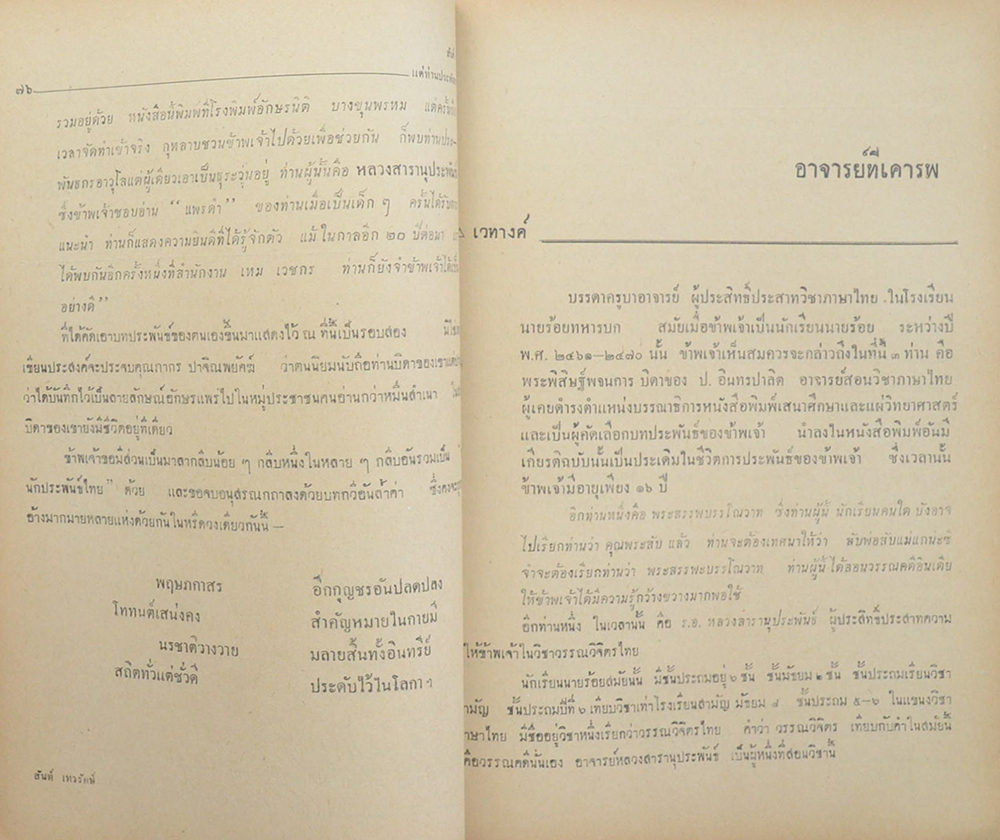 สันต์
๗๖ แด่ท่านประพัน
รวมอยู่ด้วย หนังสือนี้พิมพ์ที่โรงพิมพ์อักษรนิติ บางขุนพรหม แต่ครั้นถึง
เวลาจัดทำเข้าจริง กุหลาบชวนข้าพเจ้าไปด้วยเพื่อช่วยกัน ก็พบท่านประ-
พันธกรอาวุโสแต่ผู้เดียวเอาเป็นธุระวุ่นอยู่ ท่านผู้นั้นคือ หลวงสารานุประพันธ์
ซึ่งข้าพเจ้าชอบอ่าน “แพรดำ” ของท่านเมื่อเป็นเด็ก ๆ ครั้นได้รับการ
แนะนำ ท่านก็แสดงความยินดีที่ได้รู้จักตัว แม้ในกาลอีก ๒๐ ปีต่อมา
ได้พบกันอีกครั้งหนึ่งที่สำนักงาน เหม เวชกร ท่านก็ยังจำข้าพเจ้าได้เป็น
อย่างดี”
ที่ได้คัดเอาบทประพันธ์ของตนเองขึ้นมาแสดงไว้ ณ ที่นี้เป็นรอบสอง
เขียนประสงค์จะประจบคุณถาวร ปาจิณพยัคฆ์ ว่าตนนิยมนับถือท่านบิดาของเขา
ว่าได้บันทึกไว้เป็นลายลักษณ์อักษรแพร่ไปในหมู่ประชาชนคนอ่านกว่าหมื่นสำเนา
บิดาของเขายังมีชีวิตอยู่ทีเดียว
ข้าพเจ้าขอมีส่วนเป็นมาลากลีบน้อย ๆ กลีบหนึ่งในหลาย ๆ กลีบอันรวมเป็น
นักประพันธ์ไทย” ด้วย และขอจบอนุสรณกถาลงด้วยบทกวีอันล้ำค่า ซึ่งคง
อ้างมากมายหลายแห่งด้วยกันในหรีดวงเดียวกันนี้ —
พฤษภกาสร อีกกุญชรอันปลดปลง
โททนต์เสน่งคง สำคัญหมายในกายมี
นรชาติวางวาย มลายสิ้นทั้งอินทรีย์
สถิตทั่วแต่ชั่วดี ประดับไว้ในโลกา ฯ
สันต์ เทวรักษ์
อาจารย์ที่เคารพ
เวทางค์
บรรดาครูบาอาจารย์ ผู้ประสิทธิ์ประสาทวิชาภาษาไทย ในโรงเรียน
นายร้อยทหารบก สมัยเมื่อข้าพเจ้าเป็นนักเรียนนายร้อย ระหว่างปี
พ.ศ. ๒๔๖๑—๒๔๗๐ นั้น ข้าพเจ้าเห็นสมควรจะกล่าวถึงในที่นี้ ๓ ท่าน คือ
พระพิสิษฐ์พจนการ บิดาของ ป. อินทรปาลิต อาจารย์สอนวิชาภาษาไทย
ผู้เคยดำรงตำแหน่งบรรณาธิการหนังสือพิมพ์เสนาศึกษาและแผ่วิทยาศาสตร์
และเป็นผู้คัดเลือกบทประพันธ์ของข้าพเจ้า นำลงในหนังสือพิมพ์อันมี
เกียรติฉบับนั้นเป็นประเดิมในชีวิตการประพันธ์ของข้าพเจ้า ซึ่งเวลานั้น
ข้าพเจ้ามีอายุเพียง ๑๖ ปี
อีกท่านหนึ่งคือ พระสรรพบรรโณวาท ซึ่งท่านผู้นี้ นักเรียนคนใด บังอาจ
ไปเรียกท่านว่า คุณพระสับ แล้ว ท่านจะต้องเทศนาให้ว่า สับพ่อสับแม่แกน่ะซิ
จำจะต้องเรียกท่านว่า พระสรรพะบรรโณวาท ท่านผู้นี้ ได้สอนวรรณคดีอินเดีย
ให้ข้าพเจ้าได้มีความรู้กว้างขวางมากพอใช้
อีกท่านหนึ่ง ในเวลานั้น คือ ร.อ. หลวงสารานุประพันธ์ ผู้ประสิทธิ์ประสาทความ
ให้ข้าพเจ้าในวิชาวรรณวิจิตรไทย
นักเรียนนายร้อยสมัยนั้น มีชั้นประถมอยู่ ๖ ชั้น ชั้นมัธยม ๒ ชั้น ชั้นประถมเรียนวิชา
สามัญ ชั้นประถมปีที่ ๖ เทียบวิชาเท่าโรงเรียนสามัญ มัธยม ๘ ชั้นประถม ๕—๖ ในแขนงวิชา
ภาษาไทย มีชื่ออยู่วิชาหนึ่งเรียกว่าวรรณวิจิตรไทย คำว่า วรรณวิจิตร เทียบกับคำในสมัยนี้
คือวรรณคดีนั่นเอง อาจารย์หลวงสารานุประพันธ์ เป็นผู้หนึ่งที่สอนวิชานี้